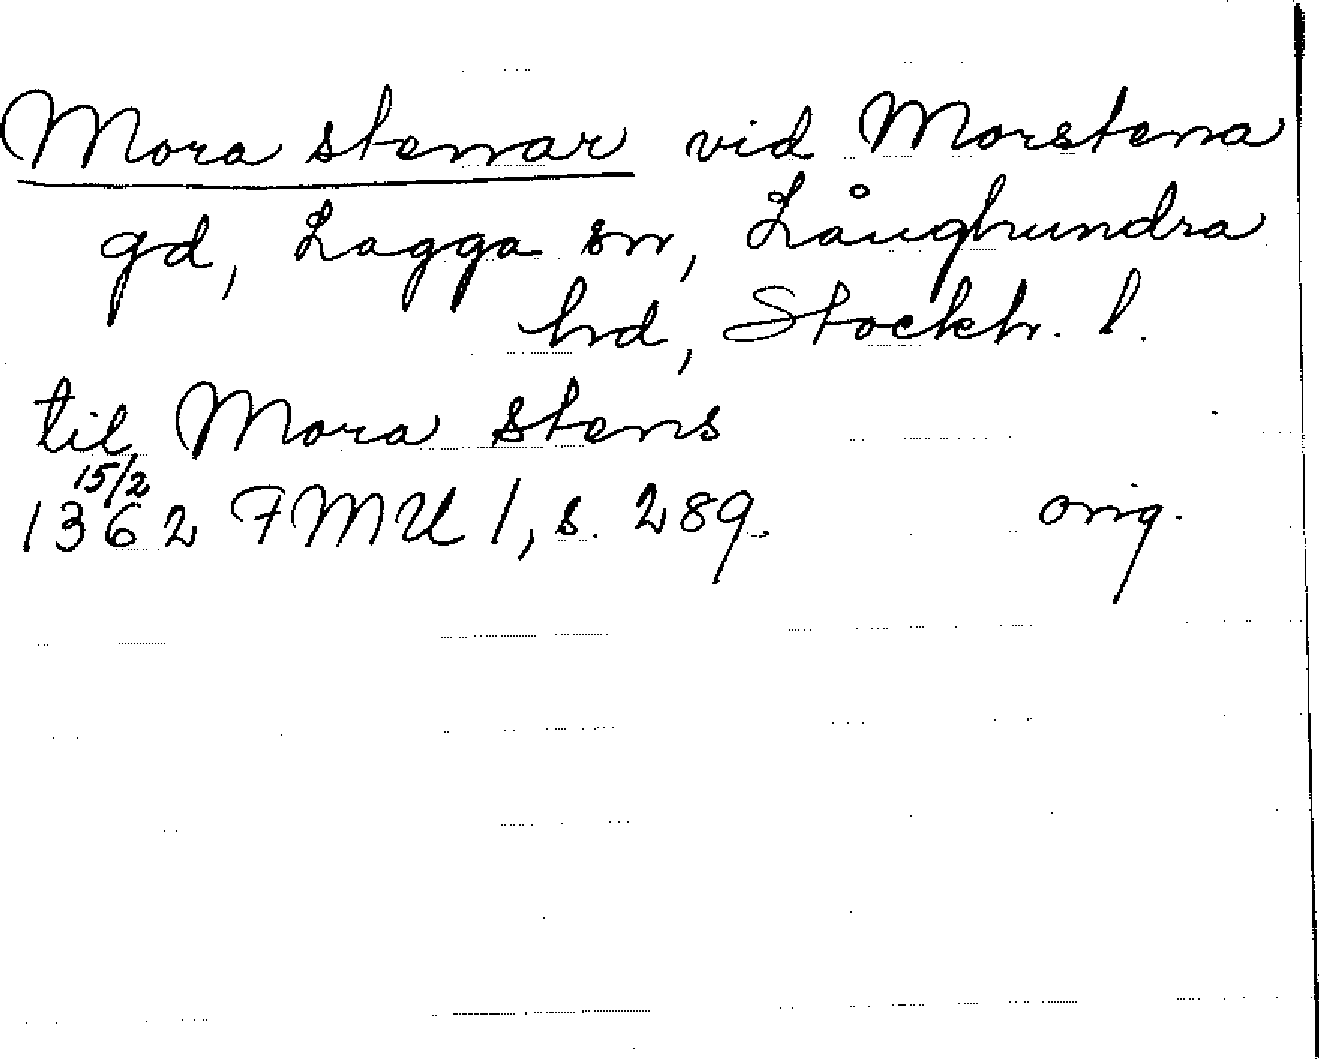 Mora stenar vid Morstena
gd, Lagga sn, Långhundra
hd, Stockh. l.
til Mora stens
15/2
1362 FMU 1, s. 289. orig.